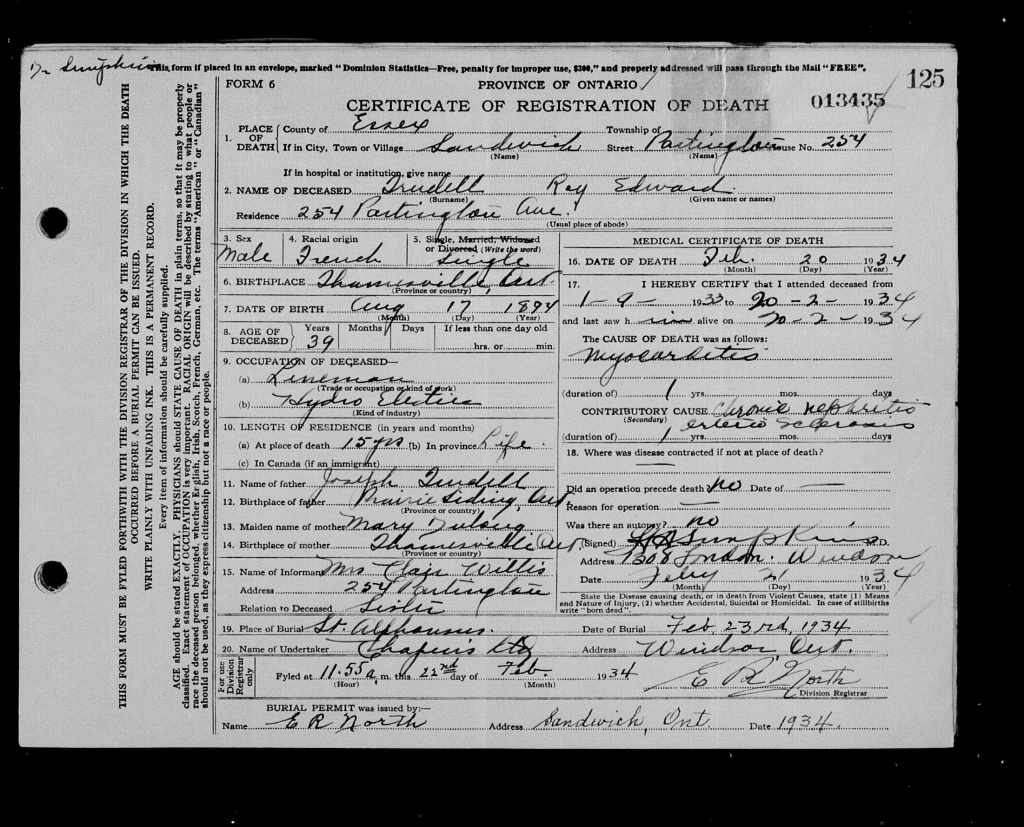 This form if placed in an envelope, marked "Dominion Statistics—Free, penalty for improper use, $300," and properly addressed will pass through the Mail "FREE".
125
FORM 6 PROVINCE OF ONTARIO
CERTIFICATE OF REGISTRATION OF DEATH 013435
1. PLACE OF DEATH County of Essex Township of
If in City, Town or Village Sandwich (Name) Street Partington (Name) House No. 254
If in hospital or institution, give name
2. NAME OF DECEASED Trudell (Surname) Roy Edward (Given name or names)
Residence 254 Partington Ave. (Usual place of abode)
3. Sex Male
4. Racial origin French
5. Single, Married, Widowed or Divorced (Write the word) Single
6. BIRTHPLACE Thamesville, Ont. (Province or country)
7. DATE OF BIRTH Aug (Month) 17 (Day) 1894 (Year)
8. AGE OF DECEASED Years 39 Months Days If less than one day old hrs. or min.
9. OCCUPATION OF DECEASED—
(a) Lineman (Trade or occupation or kind of work)
(b) Hydro Electric (Kind of industry)
10. LENGTH OF RESIDENCE (in years and months)
(a) At place of death 15 yrs (b) In province Life.
(c) In Canada (if an immigrant)
11. Name of father Joseph Trudell
12. Birthplace of father Prairie Siding, Ont. (Province or country)
13. Maiden name of mother Mary
14. Birthplace of mother Thamesville Ont. (Province or country)
15. Name of Informant Mrs Clair Willis
Address 254 Partington
Relation to Deceased Sister
MEDICAL CERTIFICATE OF DEATH
16. DATE OF DEATH Feb. (Month) 20 (Day) 1934 (Year)
17. I HEREBY CERTIFY that I attended deceased from
1-9- 1933 to 20-2- 1934
and last saw h im alive on 20-2- 1934
The CAUSE OF DEATH was as follows:
Myocarditis
(duration of) 1 yrs. mos. days
CONTRIBUTORY CAUSE (Secondary) chronic nephritis
arterio sclerosis
(duration of) 1 yrs. mos. days
18. Where was disease contracted if not at place of death?
—
Did an operation precede death? no Date of —
Reason for operation —
Was there an autopsy? no
(Signed) M.D.
Address 1308 London. Windsor
Date Feby (Month) 21 (Day) 1934 (Year)
State the Disease causing death, or in death from Violent Causes, state (1) Means and Nature of Injury, (2) whether Accidental, Suicidal or Homicidal. In case of stillbirths write "born dead".
19. Place of Burial St. Alphonsus. Date of Burial Feb. 23rd, 1934
20. Name of Undertaker Chapens Ltd Address Windsor Ont.
For use Division Registrar only Fyled at 11.55 a. m. this 22nd day of Feb. 1934 E R North
(Hour) (Month) Division Registrar
BURIAL PERMIT was issued by:—
Name E R North Address Sandwich, Ont. Date 1934.
THIS FORM MUST BE FYLED FORTHWITH WITH THE DIVISION REGISTRAR OF THE DIVISION IN WHICH THE DEATH
OCCURRED BEFORE A BURIAL PERMIT CAN BE ISSUED.
WRITE PLAINLY WITH UNFADING INK. THIS IS A PERMANENT RECORD.
Every item of information should be carefully supplied.
AGE should be stated EXACTLY. PHYSICIANS should STATE CAUSE OF DEATH in plain terms, so that it may be properly
classified. Exact statement of OCCUPATION is very important. RACIAL ORIGIN will be described by stating to what people or
race the deceased person belonged, whether English, Irish, Scotch, French, German, etc. The terms "American" or "Canadian"
should not be used, as they express citizenship but not a race or people.